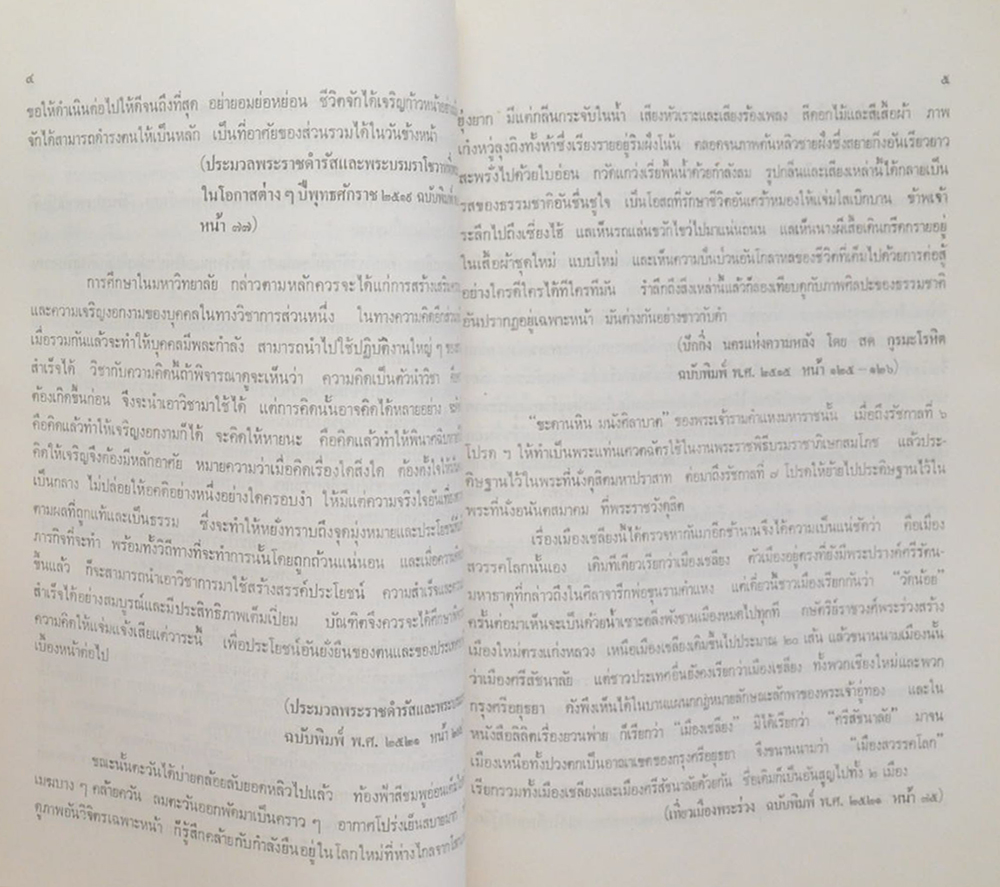 ๔
ขอให้ดำเนินต่อไปให้ดีจนถึงที่สุด อย่ายอมย่อหย่อน ชีวิตจักได้เจริญก้าวหน้า
จักได้สามารถดำรงตนให้เป็นหลัก เป็นที่อาศัยของส่วนรวมได้ในวันข้างหน้า
(ประมวลพระราชดำรัสและพระบรมราโชวาท
ในโอกาสต่าง ๆ ปีพุทธศักราช ๒๕๑๙ ฉบับพิมพ์
หน้า ๗๗)
การศึกษาในมหาวิทยาลัย กล่าวตามหลักควรจะได้แก่การสร้าง
และความเจริญงอกงามของบุคคลในทางวิชาการส่วนหนึ่ง ในทางความคิด
เมื่อรวมกันแล้วจะทำให้บุคคลมีพละกำลัง สามารถนำไปใช้ปฏิบัติงานใหญ่ ๆ
สำเร็จได้ วิชากับความคิดนี้ถ้าพิจารณาดูจะเห็นว่า ความคิดเป็นตัวนำวิชา
ต้องเกิดขึ้นก่อน จึงจะนำเอาวิชามาใช้ได้ แต่การคิดนั้นอาจคิดได้หลายอย่าง
คือคิดแล้วทำให้เจริญงอกงามก็ได้ จะคิดให้หายนะ คือคิดแล้วทำให้พินาศ
คิดให้เจริญจึงต้องมีหลักอาศัย หมายความว่าเมื่อคิดเรื่องใดสิ่งใด ต้องตั้งใจให้
เป็นกลาง ไม่ปล่อยให้อคติอย่างหนึ่งอย่างใดครอบงำ ให้มีแต่ความจริงใจ
ตามผลที่ถูกแท้และเป็นธรรม ซึ่งจะทำให้หยั่งทราบถึงจุดมุ่งหมายและประโยชน์
ภารกิจที่จะทำ พร้อมทั้งวิถีทางที่จะทำการนั้นโดยถูกถ้วนแน่นอน และเมื่อ
ขึ้นแล้ว ก็จะสามารถนำเอาวิชาการมาใช้สร้างสรรค์ประโยชน์ ความสำเร็จ
สำเร็จได้อย่างสมบูรณ์และมีประสิทธิภาพเต็มเปี่ยม บัณฑิตจึงควรจะได้ศึกษา
ความคิดให้แจ่มแจ้งเสียแต่วาระนี้ เพื่อประโยชน์อันยั่งยืนของตนและของประเทศ
เบื้องหน้าต่อไป
(ประมวลพระราชดำรัสและพระบรม
ฉบับพิมพ์ พ.ศ. ๒๕๒๑ หน้า
ขณะนั้นตะวันได้บ่ายคล้อยลับยอดหลิวไปแล้ว ท้องฟ้าสีชมพูอ่อน
เมฆบาง ๆ คล้ายควัน ลมตะวันออกพัดมาเป็นคราว ๆ อากาศโปร่งเย็นสบาย
ดูภาพอันวิจิตรเฉพาะหน้า ก็รู้สึกคล้ายกับกำลังยืนอยู่ในโลกใหม่ที่ห่างไกลจากโลก
๕
ยุ่งยาก มีแต่กลิ่นกระจับในน้ำ เสียงหัวเราะและเสียงร้องเพลง สีดอกไม้และสีเสื้อผ้า ภาพ
เก๋งหวู่ลุงถิงทั้งห้าซึ่งเรียงรายอยู่ริมฝั่งโน้น ตลอดจนภาพต้นหลิวชายฝั่งซึ่งสยายกิ่งอันเรียวยาว
สะพรั่งไปด้วยใบอ่อน กวัดแกว่งเรี่ยพื้นน้ำด้วยกำลังลม รูปกลิ่นและเสียงเหล่านี้ได้กลายเป็น
รสของธรรมชาติอันชื่นชูใจ เป็นโอสถที่รักษาชีวิตอันเศร้าหมองให้แจ่มใสเบิกบาน ข้าพเจ้า
ระลึกไปถึงเซี่ยงไฮ้ แลเห็นรถแล่นขวักไขว่ไปมาแน่นถนน แลเห็นนางผีเสื้อเดินกรีดกรายอยู่
ในเสื้อผ้าชุดใหม่ แบบใหม่ และเห็นความปั่นป่วนอันโกลาหลของชีวิตที่เต็มไปด้วยการต่อสู้
อย่างใครดีใครได้ที่ใครที่มัน รำลึกถึงสิ่งเหล่านี้แล้วก็ลองเทียบดูกับภาพศิลปะของธรรมชาติ
อันปรากฏอยู่เฉพาะหน้า มันต่างกันอย่างขาวกับดำ
(ปักกิ่ง นครแห่งความหลัง โดย สด กูรมะโรหิต
ฉบับพิมพ์ พ.ศ. ๒๕๑๕ หน้า ๑๒๕–๑๒๖)
“ขะดานหิน มนังศิลาบาต” ของพระเจ้ารามคำแหงมหาราชนั้น เมื่อถึงรัชกาลที่ ๖
โปรด ฯ ให้ทำเป็นพระแท่นเศวตฉัตรใช้ในงานพระราชพิธีบรมราชาภิเษกสมโภช แล้วประ-
ดิษฐานไว้ในพระที่นั่งดุสิตมหาปราสาท ต่อมาถึงรัชกาลที่ ๗ โปรดให้ย้ายไปประดิษฐานไว้ใน
พระที่นั่งอนันตสมาคม ที่พระราชวังดุสิต
เรื่องเมืองเชลียงนี้ได้ตรวจหากันมาอีกช้านานจึงได้ความเป็นแน่ชัดว่า คือเมือง
สวรรคโลกนั้นเอง เดิมทีเดียวเรียกว่าเมืองเชลียง ตัวเมืองอยู่ตรงที่ยังมีพระปรางค์ศรีรัตน-
มหาธาตุที่กล่าวถึงในศิลาจารึกพ่อขุนรามคำแหง แต่เดี๋ยวนี้ชาวเมืองเรียกกันว่า “วัดน้อย”
ครั้นต่อมาเห็นจะเป็นด้วยน้ำเซาะตลิ่งพังชานเมืองหมดไปทุกที กษัตริย์ราชวงศ์พระร่วงสร้าง
เมืองใหม่ตรงแก่งหลวง เหนือเมืองเชลียงเดิมขึ้นไปประมาณ ๒๐ เส้น แล้วขนานนามเมืองนั้น
ว่าเมืองศรีสัชนาลัย แต่ชาวประเทศอื่นยังคงเรียกว่าเมืองเชลียง ทั้งพวกเชียงใหม่และพวก
กรุงศรีอยุธยา ดังพึงเห็นได้ในบานแผนกกฎหมายลักษณะลักพาของพระเจ้าอู่ทอง และใน
หนังสือลิลิตเรื่องยวนพ่าย ก็เรียกว่า “เมืองเชลียง” มิได้เรียกว่า “ศรีสัชนาลัย” มาจน
เมืองเหนือทั้งปวงตกเป็นอาณาเขตของกรุงศรีอยุธยา จึงขนานนามว่า “เมืองสวรรคโลก”
เรียกรวมทั้งเมืองเชลียงและเมืองศรีสัชนาลัยด้วยกัน ชื่อเดิมก็เป็นอันสูญไปทั้ง ๒ เมือง
(เที่ยวเมืองพระร่วง ฉบับพิมพ์ พ.ศ. ๒๕๒๑ หน้า ๗๕)